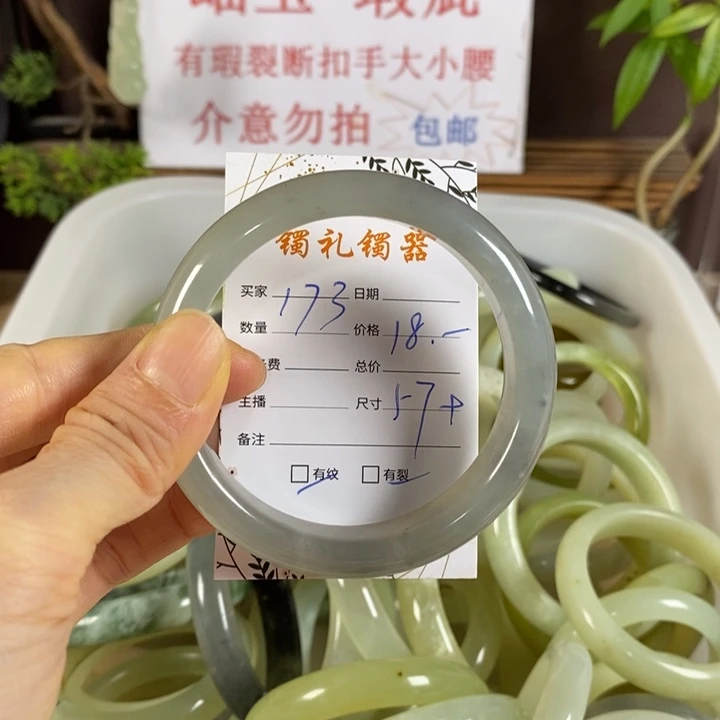 岫玉 瑕疵
有瑕裂断扣手大小腰
介意勿拍 包邮
镯礼镯器
买家 173 日期
数量 价格 18.-
费 总价
主播 尺寸 57+
备注
有纹 有裂